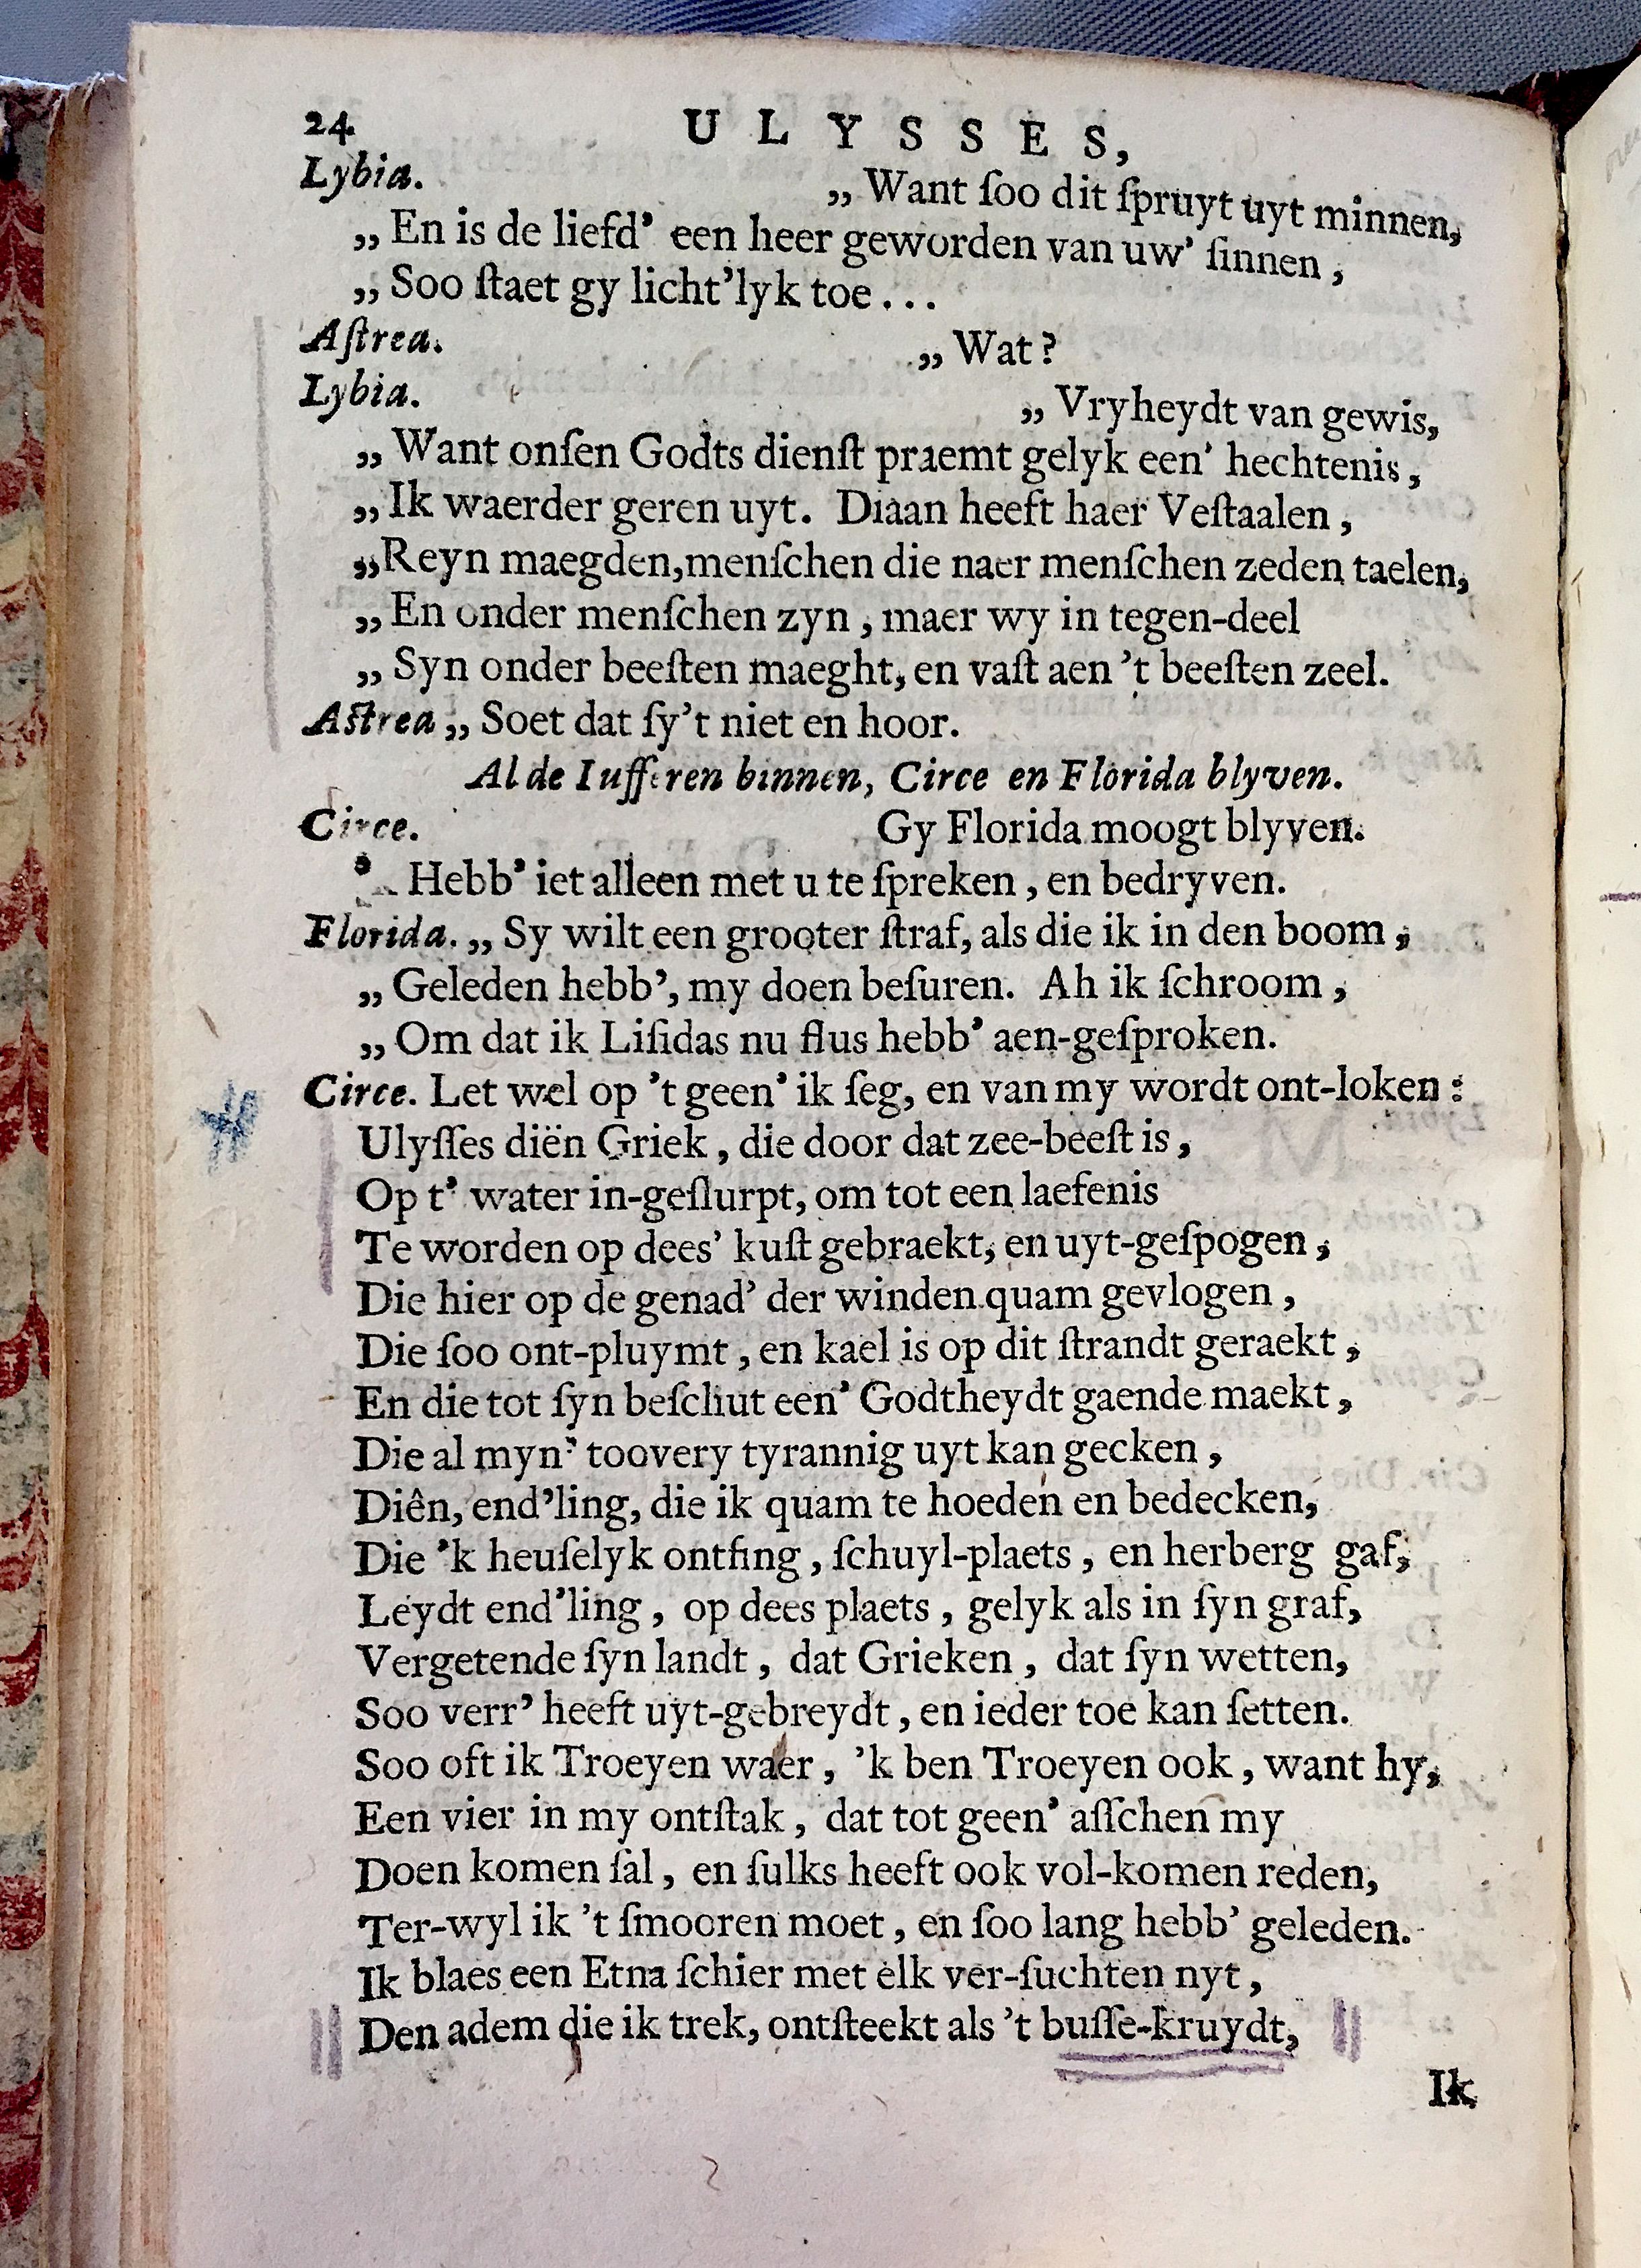 24 ULYSSES,
Lybia. „ Want ſoo dit ſpruyt uyt minnen,
„ En is de liefd’ een heer geworden van uw’ ſinnen ,
„ Soo ſtaet gy licht’lyk toe . . .
Aſtrea. „ Wat ?
Lybia. „ Vryheydt van gewis,
„ Want onſen Godts dienſt praemt gelyk een’ hechtenis ,
„ Ik waerder geren uyt. Diaan heeft haer Veſtaalen ,
„Reyn maegden,menſchen die naer menſchen zeden taelen,
„ En onder menſchen zyn , maer wy in tegen-deel
„ Syn onder beeſten maeght, en vaſt aen ’t beeſten zeel.
Aſtrea „ Soet dat ſy’t niet en hoor.
Al de Iufferen binnen, Circe en Florida blyven.
Circe. Gy Florida moogt blyven.
Hebb’ iet alleen met u te ſpreken , en bedryven.
Florida. „ Sy wilt een grooter ſtraf, als die ik in den boom ,
„ Geleden hebb’, my doen beſuren. Ah ik ſchroom ,
„ Om dat ik Liſidas nu flus hebb’ aen-geſproken.
Circe. Let wel op ’t geen’ ik ſeg, en van my wordt ont-loken :
Ulyſſes diën Griek , die door dat zee-beeſt is ,
Op t’ water in-geſlurpt, om tot een laefenis
Te worden op dees’ kuſt gebraekt, en uyt-geſpogen ,
Die hier op de genad’ der winden quam gevlogen ,
Die ſoo ont-pluymt , en kael is op dit ſtrandt geraekt ,
En die tot ſyn beſchut een’ Godtheydt gaende maekt ,
Die al myn’ toovery tyrannig uyt kan gecken ,
Diên, end’ling, die ik quam te hoeden en bedecken,
Die ’k heuſelyk ontfing , ſchuyl-plaets , en herberg gaf,
Leydt end’ling , op dees plaets , gelyk als in ſyn graf,
Vergetende ſyn landt , dat Grieken , dat ſyn wetten,
Soo verr’ heeft uyt-gebreydt , en ieder toe kan ſetten.
Soo oft ik Troeyen waer , ’k ben Troeyen ook , want hy,
Een vier in my ontſtak , dat tot geen’ aſſchen my
Doen komen ſal , en ſulks heeft ook vol-komen reden,
Ter-wyl ik ’t ſmooren moet , en ſoo lang hebb’ geleden.
Ik blaes een Etna ſchier met elk ver-ſuchten nyt ,
Den adem die ik trek, ontſteekt als ’t buſſe-kruydt,
Ik